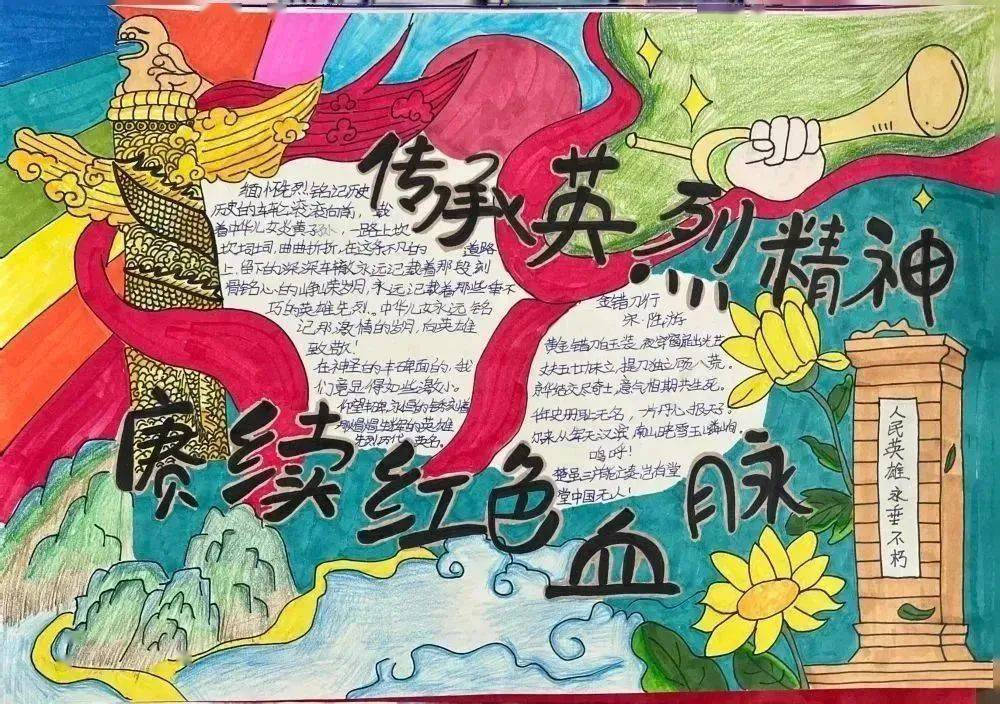 传承英烈精神
缅怀先烈铭记历史
历史的车轮滚滚向前，载
着中华儿女炎黄子孙，一路上坎
坎坷坷，曲曲折折，在这条不凡的道路
上，留下的深深车辙永远记载着那段刻
骨铭心的峥嵘岁月，永远记载着那些垂不
朽的英雄先烈。中华儿女永远铭
记那激情的岁月，向英雄
致敬！
在神圣的丰碑面前，我
们竟显得如此渺小。
仰望丰碑，永恒的
的英雄
先烈万代
金错刀行
宋·陆游
黄金错刀白玉装，夜穿窗扉出光芒
丈夫五十功未立，提刀独立顾八荒。
京华结交尽奇士，意气相期共生死。
千年史册耻无名，一片丹心报天子。
尔来从军天汉滨，南山晓雪玉嶙峋。
呜呼！
楚虽三户能亡秦，岂有堂
堂中国无人！
赓续红色血脉
人民英雄永垂不朽